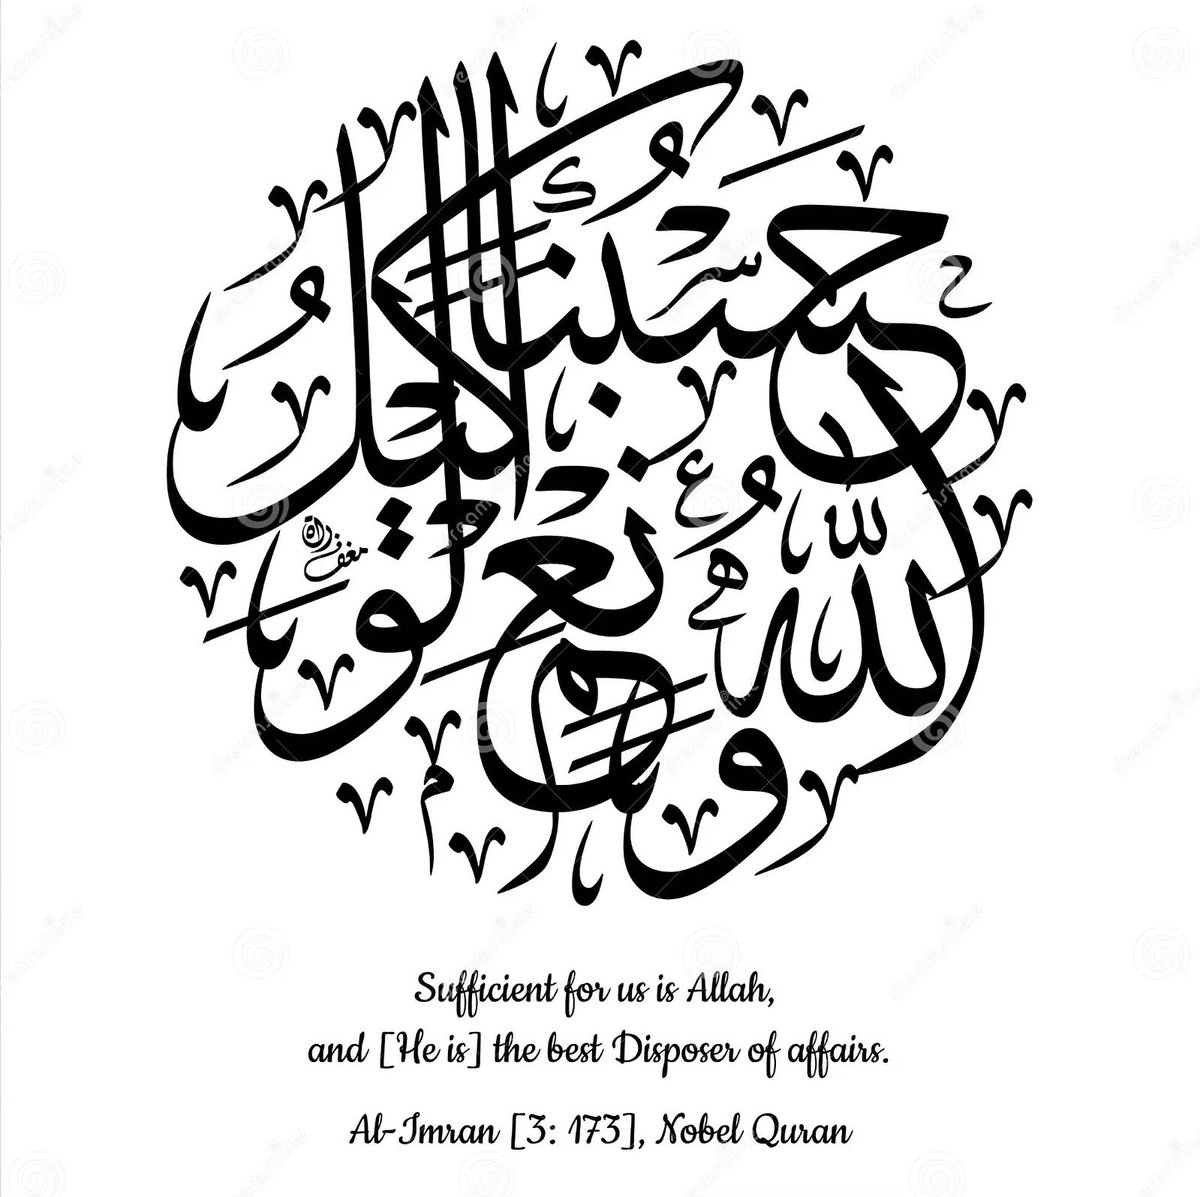 حَسْبُنَا اللّٰهُ وَنِعْمَ الْوَكِيلُ
Sufficient for us is Allah,
and [He is] the best Disposer of affairs.
Al-Imran [3: 173], Nobel Quran
dreamstime